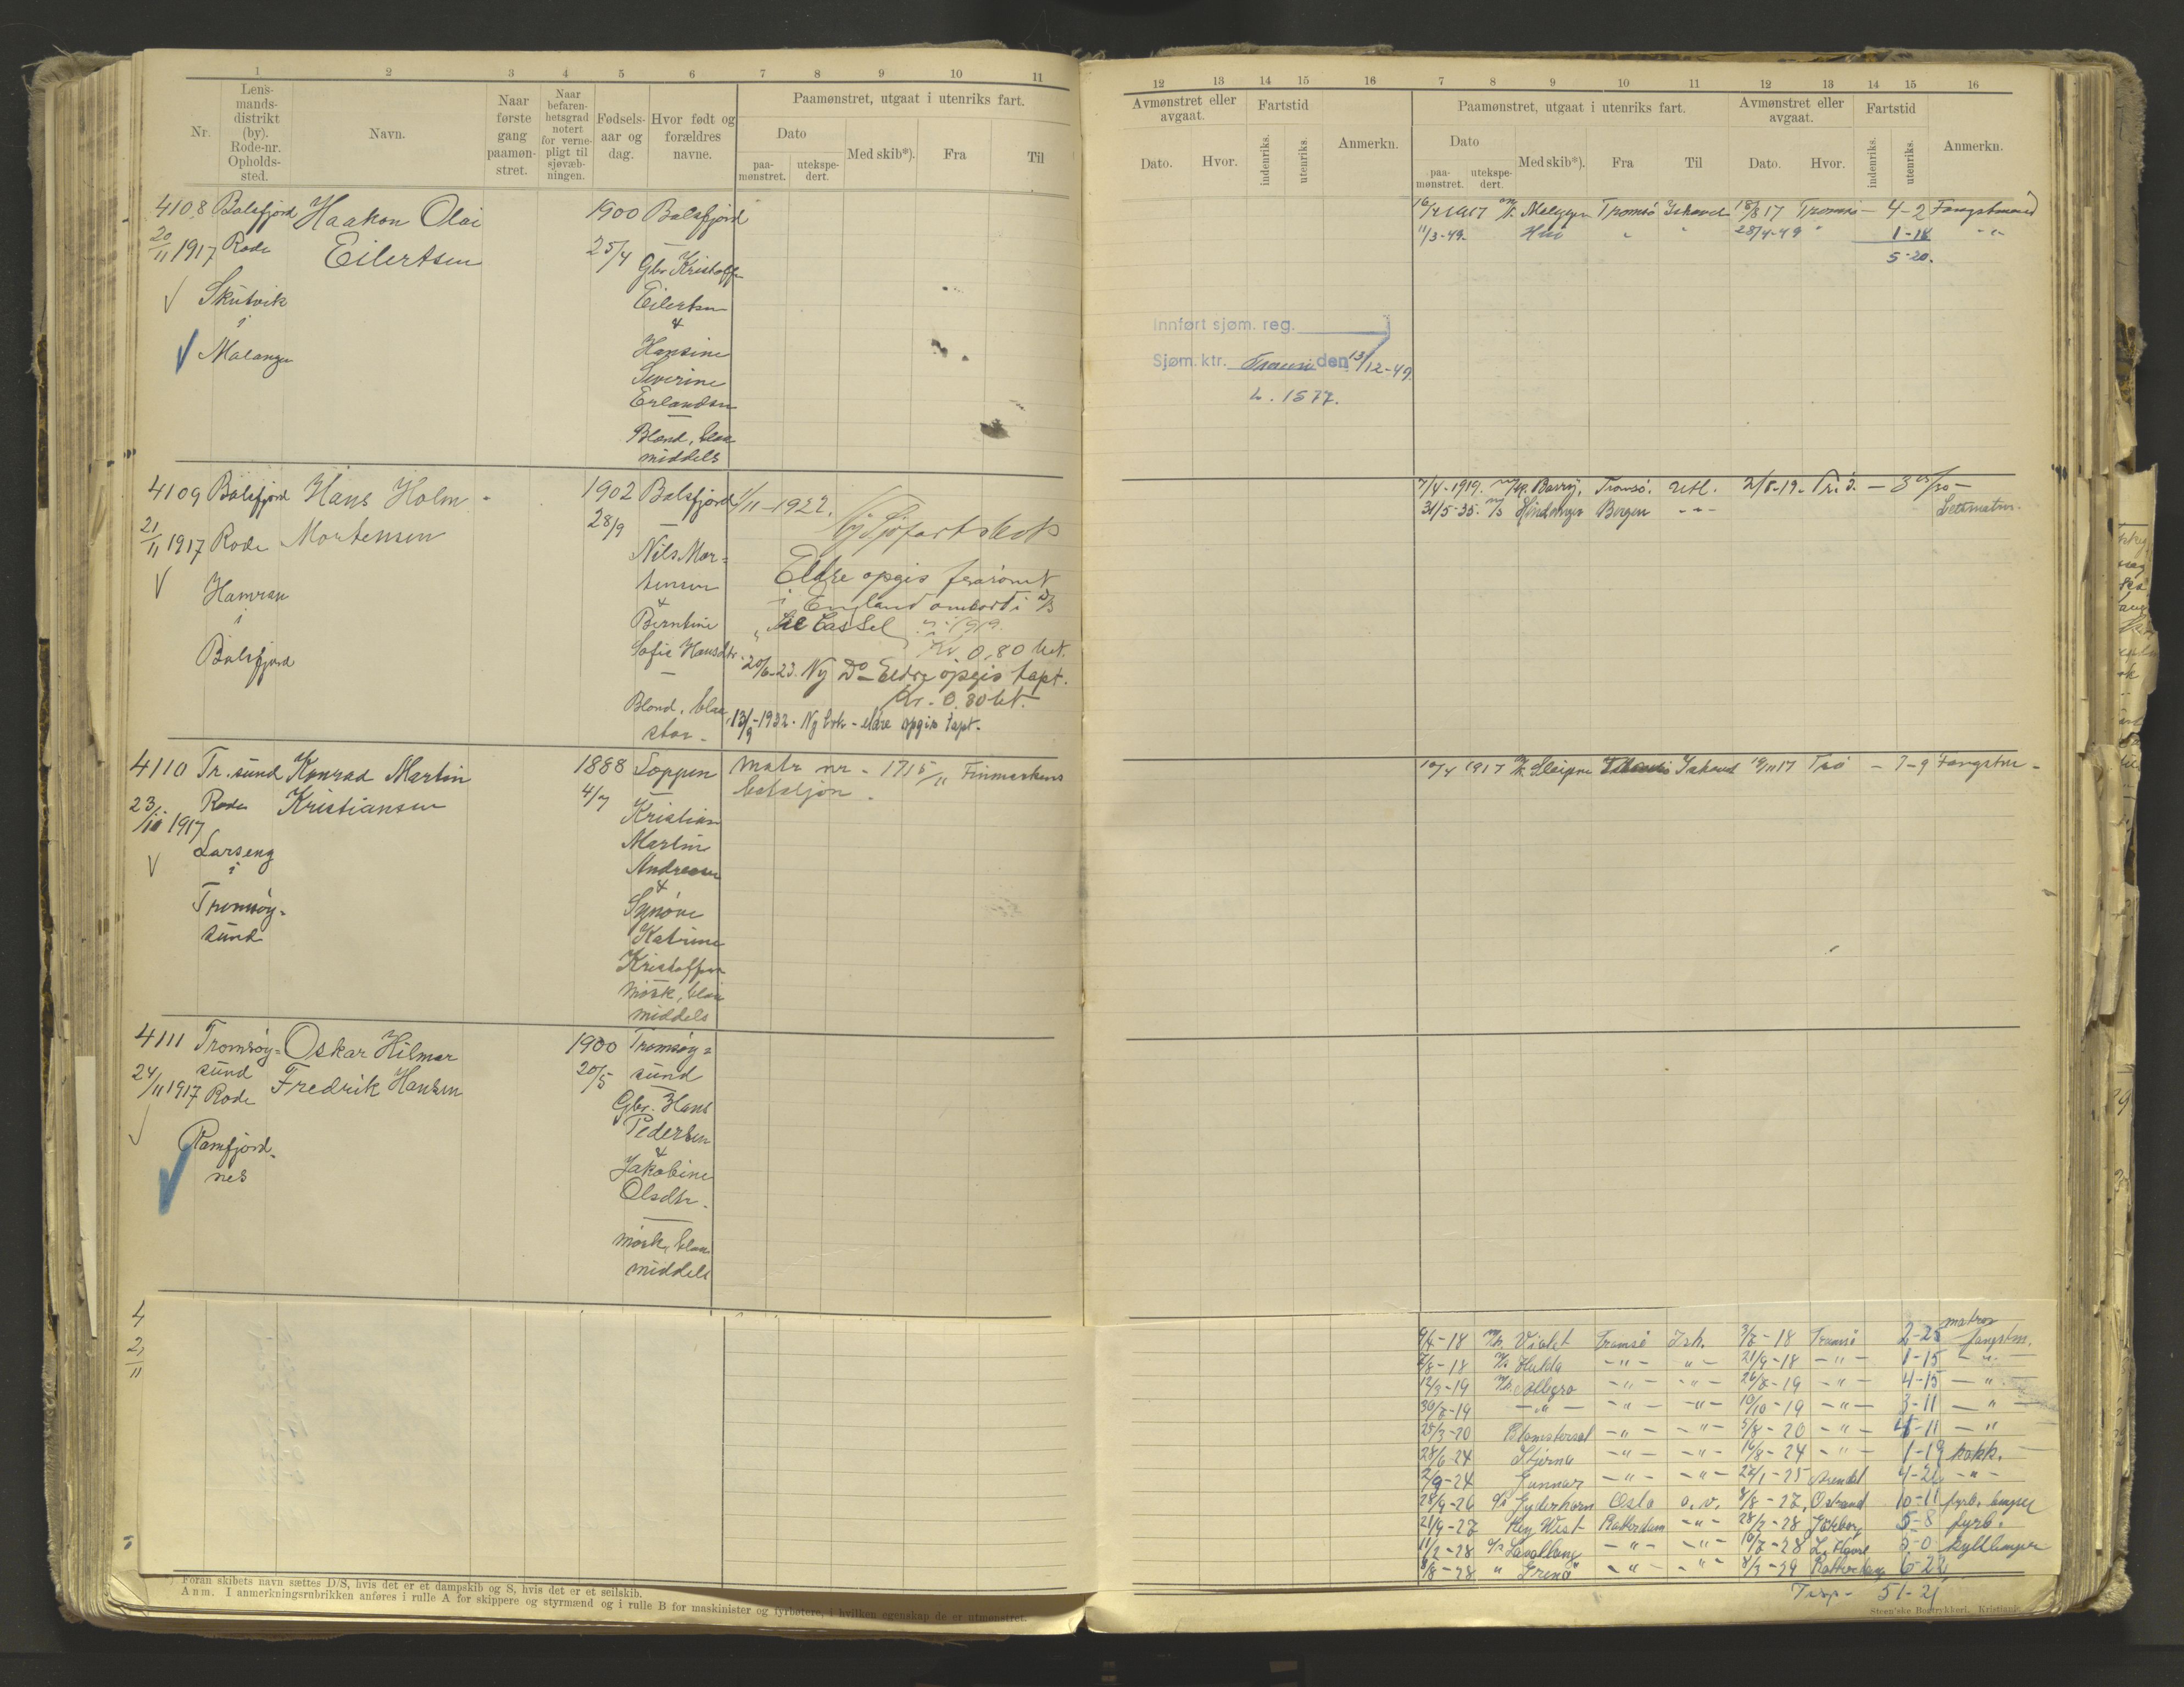 1 2 3 4 5 6 7 8 9 10 11
Nr.
Lens-
mands-
distrikt
(by).
Rode-nr.
Opholds-
sted.
Navn.
Naar
første
gang
paamøn-
stret.
Naar
befaren-
hetsgrad
notert
for verne-
pligt til
sjøvæb-
ningen.
Fødsels-
aar og
dag.
Hvor født og
forældres
navne.
Paamønstret, utgaat i utenriks fart.
Dato
paa-
mønstret.
utekspe-
dert.
Med skib*).
Fra
Til
4108 Balsfjord Haakon Olai 1900 Balsfjord
20/11 1917 Rode Eilertsen 25/4
Gbr Kristoffer
Skutvik Eilertsen
i &
Malangen Hansine
Severine
Erlandsen
Blond, blaa
middels
4109 Balsfjord Hans Holm 1902 Balsfjord 1/11-1922. Ny Sjøfartsbok
21/11 1917 Rode Mortensen 28/9
Nils Mor-
tensen Eldre opgis frarømt
Hamran & i England ombord i D/S
i Berntine
Balsfjord Sofie Hansdtr. Kr 0,80 bet.
20/6-23. Ny Do Eldre opgis tapt.
Kr. 0.80 bet.
Blond, blaa, 13/9-1932. Ny bok - eldre opgis tapt.
stor -
4110 Tr.sund Konrad Martin 1888 Loppen Matr nr - 1715/11 Finmarkens
23/11 1917 Rode Kristiansen 4/7 bataljon.
Kristian
Larseng Martin
i Andreasen
Tromsøy- &
sund Synøve
Katrine
Kristoffersen
mørk, blaa
middels
4111 Tromsøy- Oskar Hilmar 1900 Tromsøy-
sund 20/5 sund
24/11 1917 Rode Fredrik Hansen
Gbr. Hans
Pedersen
Ramfjord- &
nes Jakobine
Olsdtr.
mørk, blaa
middels
4
2
11
*) Foran skibets navn sættes D/S, hvis det er et dampskib og S, hvis det er et seilskib.
Anm. I anmerkningsrubrikken anføres i rulle A for skippere og styrmænd og i rulle B for maskinister og fyrbøtere, i hvilken egenskap de er utmønstret.
12 13 14 15 16 7 8 9 10 11 12 13 14 15 16
Avmønstret eller
avgaat.
Dato.
Hvor.
Fartstid
indenriks.
utenriks.
Anmerkn.
Paamønstret, utgaat i utenriks fart.
Dato
paa-
mønstret.
utekspe-
dert.
Med skib*).
Fra
Til
Avmønstret eller
avgaat.
Dato.
Hvor.
Fartstid
indenriks.
utenriks.
Anmerkn.
1917 Tromsø Ishavet 18/8 17 Tromsø - 4-2 Fangstmand
11/3-49. " " 28/4-49 " 1-18 - " -
5-20.
Innført sjøm. reg.
Sjøm. ktr. Tromsø den 13/12-49.
L. 1577.
7/4-1919. Tromsø. Utl. 2/8-19. Tr.ö. - 3 25/30 -
31/5-35. Bergen - " - Letmatros.
10/4 1917 Sleipner Ishavet 19/11 17 Trø - 7-9 Fangstm -
9/4-18 M/k. Violet Tromsø Ish. 3/7-18 Tromsø 2-25 matros fangstm.
7/8-18 Hulda - " - - " - 21/9-18 - " - 1-15 - " -
12/3-19 M/k. Allegro - " - - " - 26/7-19 - " - 4-15 - " -
30/7-19 - " - - " - - " - 10/10-19 - " - 3-11 - " -
25/3-20 Blomstersol - " - - " - 5/8-20 - " - 4-11 - " -
28/6-24 Stjerna - " - - " - 16/8-24 - " - 1-19 kokk.
2/9-24 Gunnar - " - - " - 22/1-25 Arendal 4-20 - " -
28/9-26 Gyderhorn Oslo o.v. 8/8-27, Ostrand 10-11 fyrb. lemper
21/9-27 Key West Rotterdam - " - 28/2-28 Gøteborg 5-8 fyrb.
11/2-28 - " - - " - 10/7-28 L. Havre 5-0 kullemper
8/8-28 " - " - - " - 8/3-29 Rotterdam 6-22
51-21
Steen'ske Bogtrykkeri, Kristiania